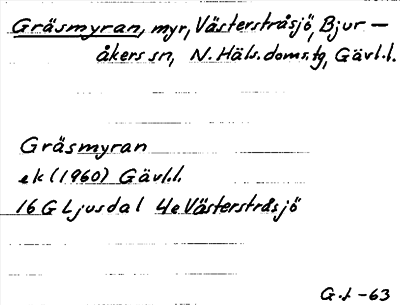 Gräsmyran, myr, Västerstråsjö, Bjur—
åkers sn, N. Häls. doms.tg, Gävl.l.
Gräsmyran
ek (1960) Gävl.l.
16 G Ljusdal 4e Västerstråsjö
G.L -63